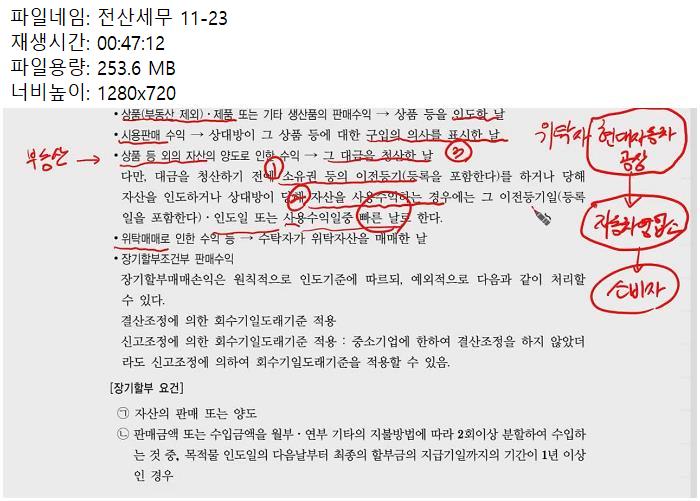 파일네임: 전산세무 11-23
재생시간: 00:47:12
파일용량: 253.6 MB
너비높이: 1280x720
• 상품(부동산 제외)·제품 또는 기타 생산품의 판매수익 → 상품 등을 인도한 날
• 시용판매 수익 → 상대방이 그 상품 등에 대한 구입의 의사를 표시한 날
부동산 →
• 상품 등 외의 자산의 양도로 인한 수익 → 그 대금을 청산한 날 ③
① 다만, 대금을 청산하기 전에 소유권 등의 이전등기(등록을 포함한다)를 하거나 당해
자산을 인도하거나 상대방이 당해 자산을 사용수익하는 경우에는 그 이전등기일(등록
②
일을 포함한다)·인도일 또는 사용수익일중 빠른 날로 한다.
• 위탁매매로 인한 수익 등 → 수탁자가 위탁자산을 매매한 날
• 장기할부조건부 판매수익
장기할부매매손익은 원칙적으로 인도기준에 따르되, 예외적으로 다음과 같이 처리할
수 있다.
결산조정에 의한 회수기일도래기준 적용
신고조정에 의한 회수기일도래기준 적용 : 중소기업에 한하여 결산조정을 하지 않았더
라도 신고조정에 의하여 회수기일도래기준을 적용할 수 있음.
[장기할부 요건]
㉠ 자산의 판매 또는 양도
㉡ 판매금액 또는 수입금액을 월부·연부 기타의 지불방법에 따라 2회이상 분할하여 수입하
는 것 중, 목적물 인도일의 다음날부터 최종의 할부금의 지급기일까지의 기간이 1년 이상
인 경우
위탁자
현대자동차
공상
자동차영업소
소비자